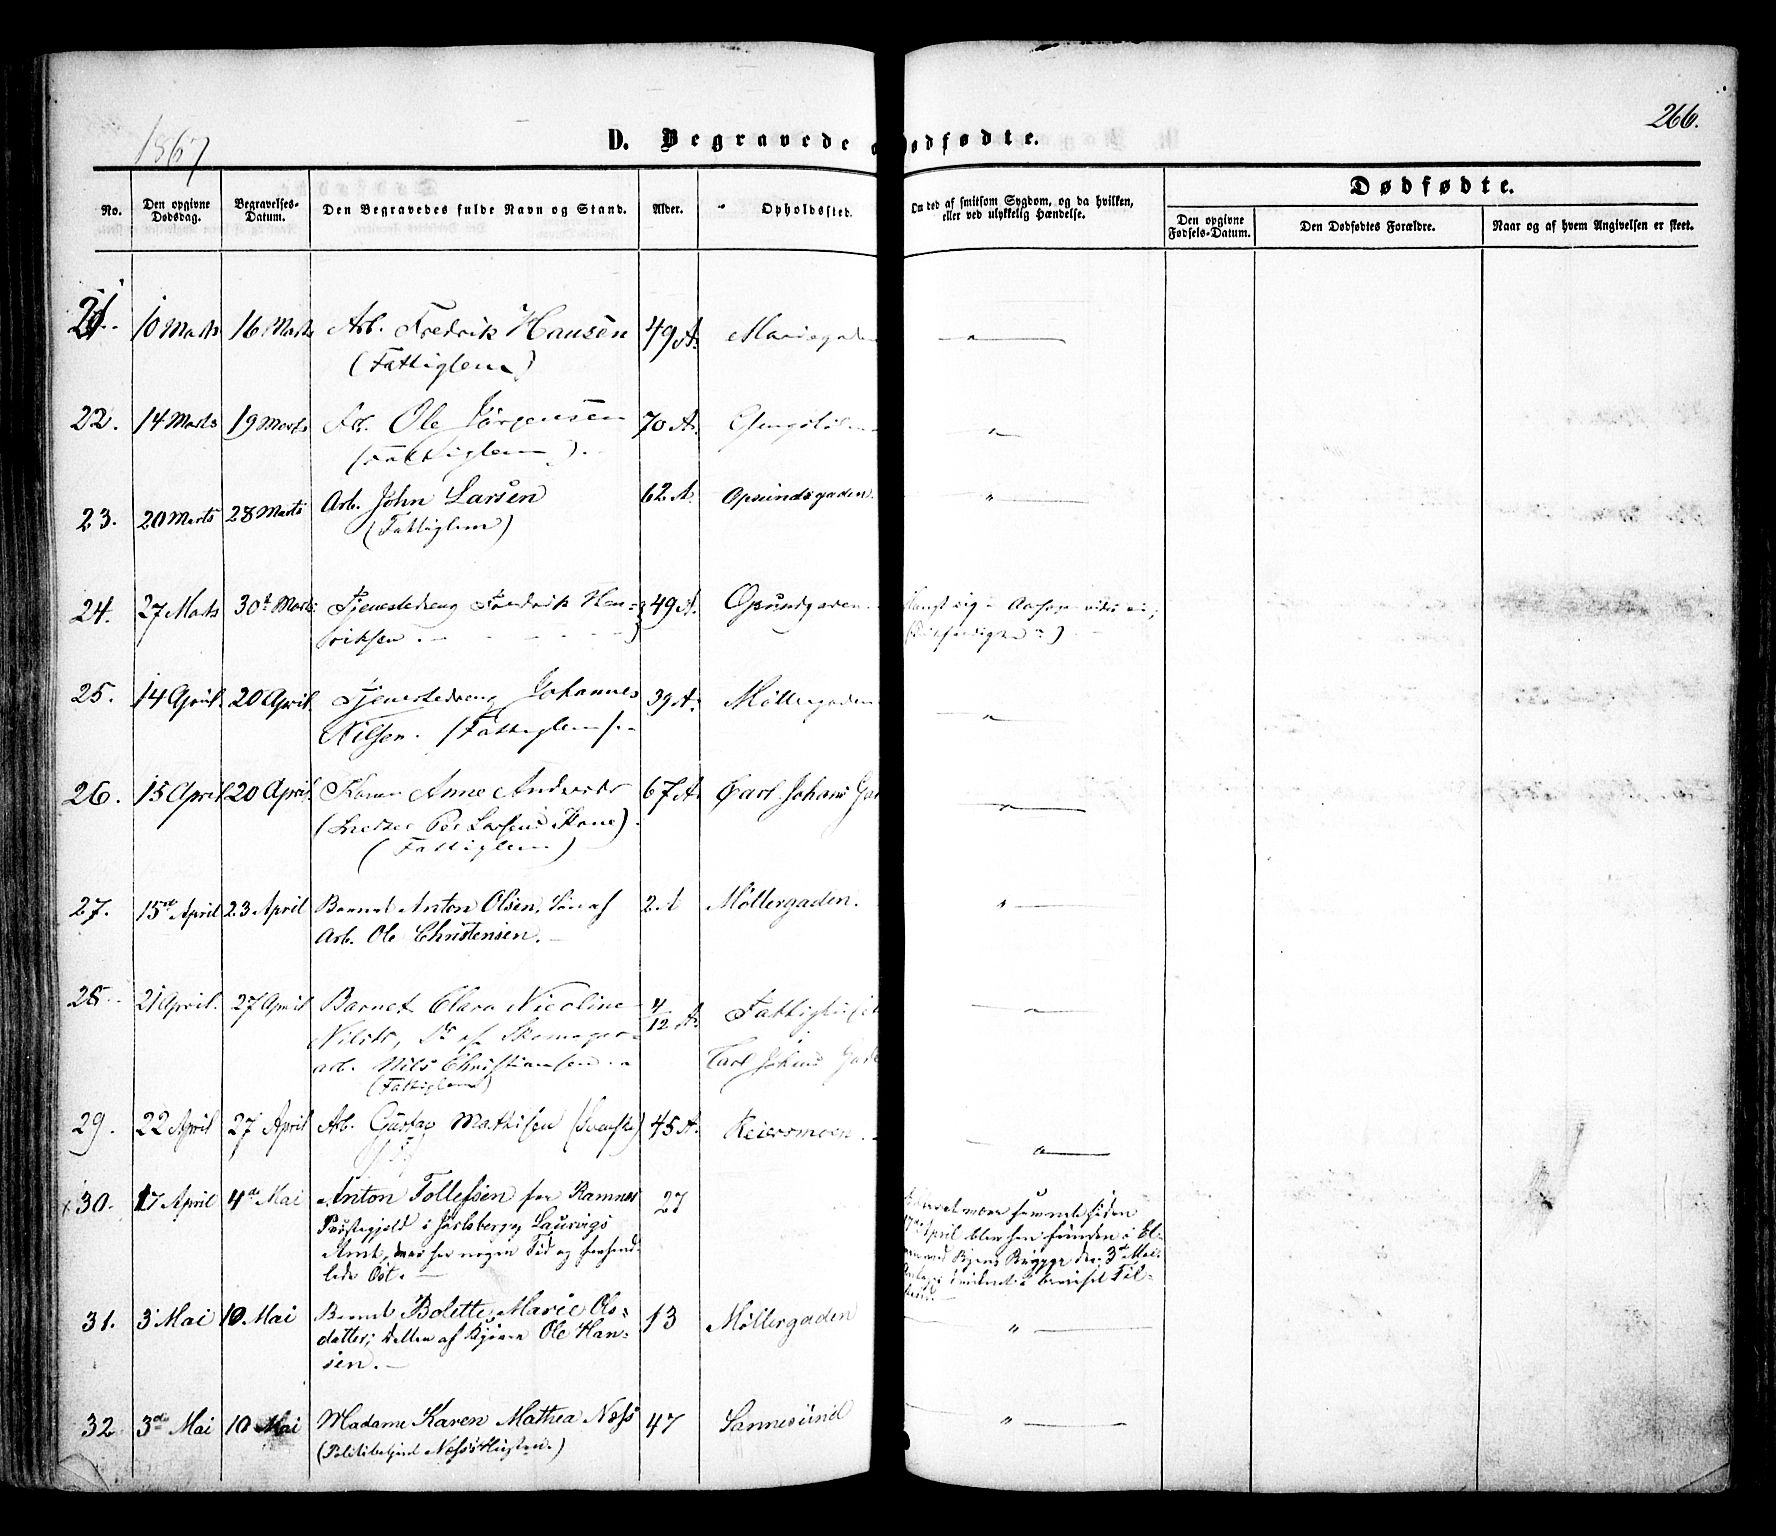 266.
1867
D. Begravede o Dødfødte.
No.
Den opgivne Dødsdag.
Begravelses-Datum.
Den Begravedes fulde Navn og Stand.
Alder.
Opholdssted.
Om død af smitsom Sygdom, og da hvilken,
eller ved ulykkelig Hændelse.
Dødfødte.
Den opgivne Fødsels-Datum.
Den Dødfødtes Forældre.
Naar og af hvem Angivelsen er skeet.
21. 10 Marts 16 Marts Arb. Fredrik Hansen 49 A. Mariegaden "
(Fattiglem)
22. 14 Marts 19 Marts Arb. Ole Jörgensen 70 A. "
(Fattiglem).
23. 20 Marts 28 Marts Arb. John Larsen 62 A. Opsundsgaden. "
(Fattiglem)
24. 27 Marts 30t Marts Tjenestedreng Fredrik Hen- 49 A. Opsundgaden
riksen
25. 14 April 20 April. Tjenestedreng Johannes 39 A. Møllergaden "
Nilsen. (Fattiglem).
26. 15 April 20 April. Konen Anne Andersdr 67 A. Carl Johans Gad "
( Per Larsens Kone)
(Fattiglem)
27. 15de April 23 April Barnet Anton Olsen, Søn af 2 A Møllergaden. "
Arb. Ole Christensen.
28. 21 April. 27 April Barnet Clara Nicoline 4/12 A. "
Nilsdr, Dr af Skomager-
arb. Nils Christiansen Carl Johans Gade
(Fattiglem)
29. 22 April 27 April Arb. Gustav Mathisen (Svensk) 45 A. Reiersmoen. "
30. 17 April 4de Mai Anton Tollefsen fra Ramnes 27
Præstegjeld i Jarlsberg og Laurvigs
Amt, var her nogen Tid og forhand-
lede Ost.
savnet siden
17de April blev han funden i El-
ven ved Byens Brygge den 3de Mai.
31. 3 Mai 10 Mai Barnet Bolette Marie Ols- 13 Møllergaden "
datter; Datter af Ole Han-
sen.
32. 3de Mai 10 Mai Madame Karen Mathea Næss 47 Sannesund "
(Politibetjent Næss's Hustru)